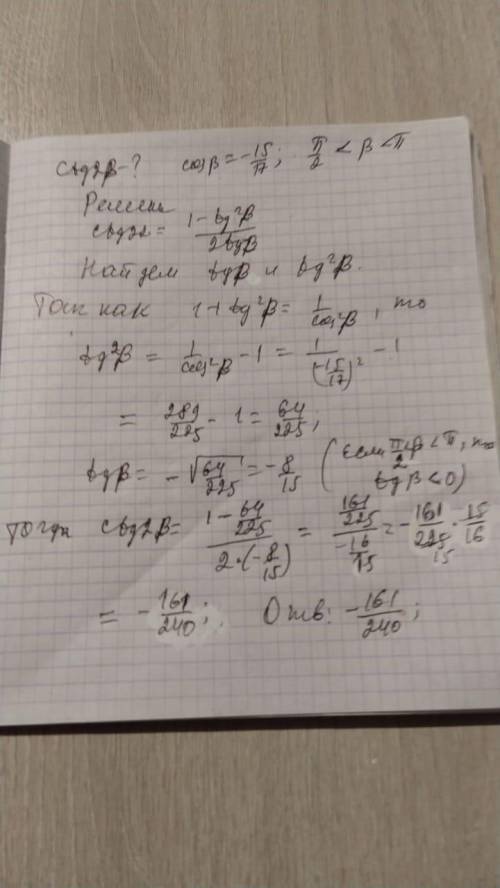 ctg2β-? cosβ = -15/17; π/2 < β < π
Решение
ctg2α = (1 - tg²β)/(2tgβ)
Найдем tgβ и tg²β.
Так как 1 + tg²β = 1/cos²β, то
tg²β = 1/cos²β - 1 = 1/(-15/17)² - 1
= 289/225 - 1 = 64/225;
tgβ = -√(64/225) = -8/15 (Если π/2<β<π, то tgβ<0)
Тогда ctg2β = (1 - 64/225)/(2·(-8/15)) = (161/225)/(-16/15) = -161/225 · 15/16
= -161/240; Отв: -161/240;